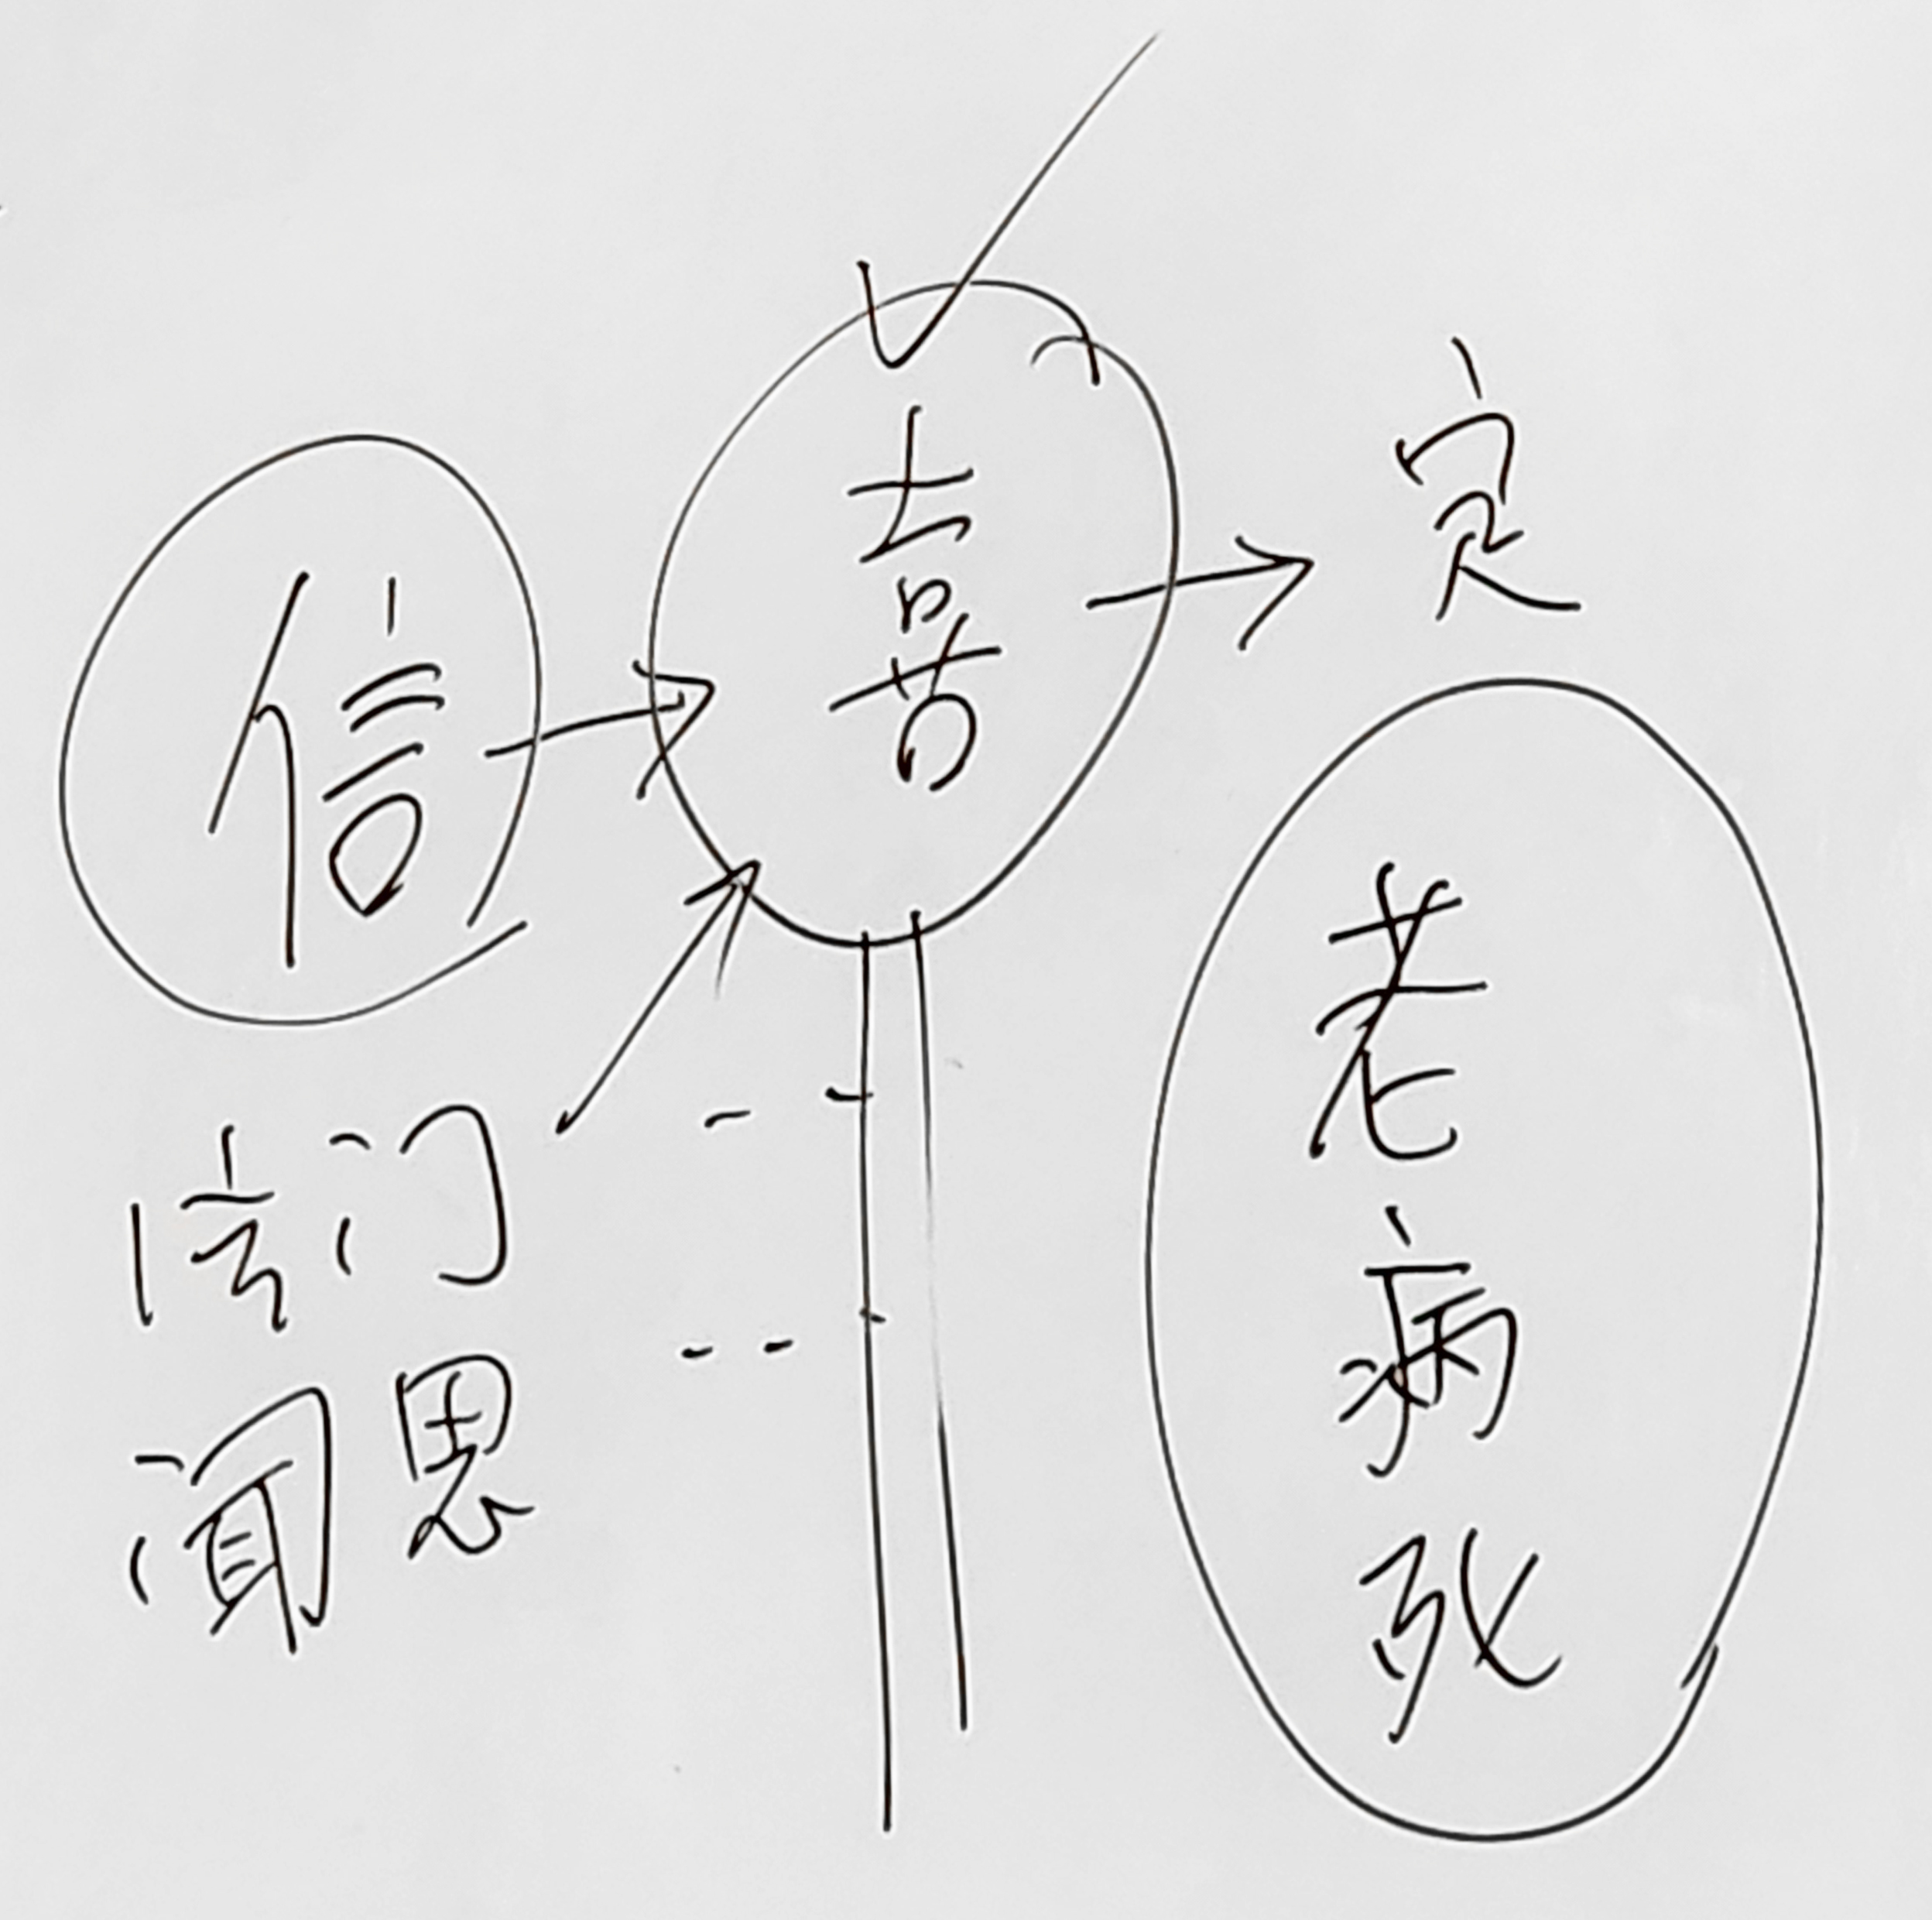 信
喜
定
门
闻思
老
病
死